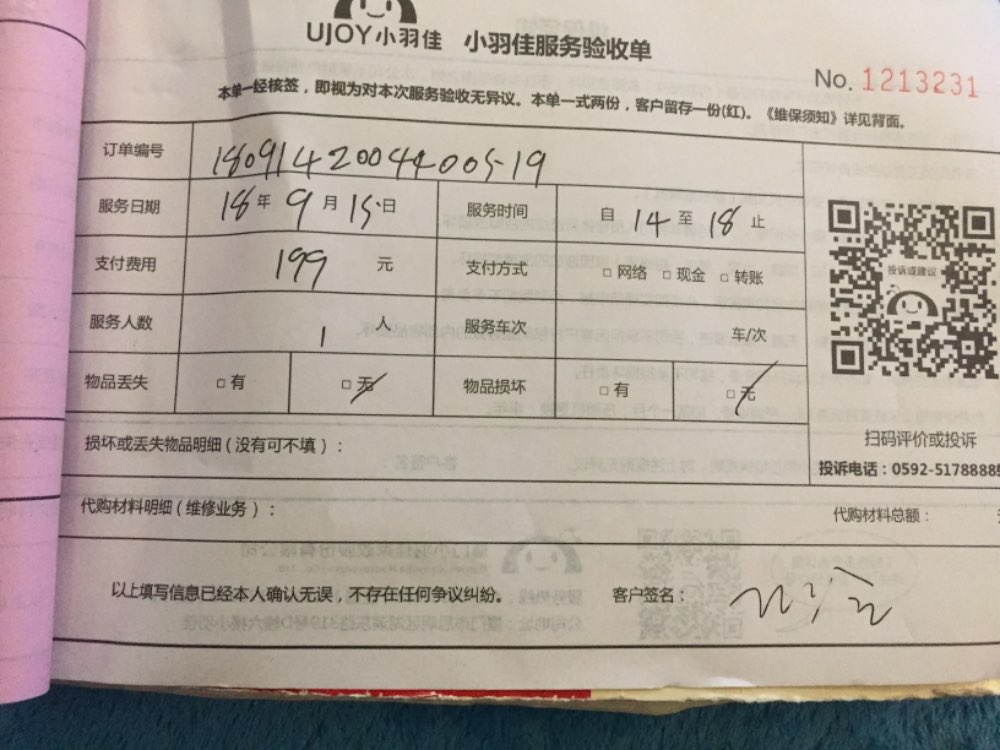 UJOY小羽佳 小羽佳服务验收单
No. 1213231
本单一经核签，即视为对本次服务验收无异议。本单一式两份，客户留存一份(红)。《维保须知》详见背面。
订单编号 18091420044005-19
服务日期 18年9月15日 服务时间 自14至18止
支付费用 199元 支付方式 □网络 □现金 □转账
投诉或建议
服务人数 1人 服务车次 车/次
物品丢失 □有 □无 物品损坏 □有 □无
扫码评价或投诉
损坏或丢失物品明细（没有可不填）：
投诉电话：0592-5178888
代购材料明细（维修业务）： 代购材料总额：
以上填写信息已经本人确认无误，不存在任何争议纠纷。 客户签名：